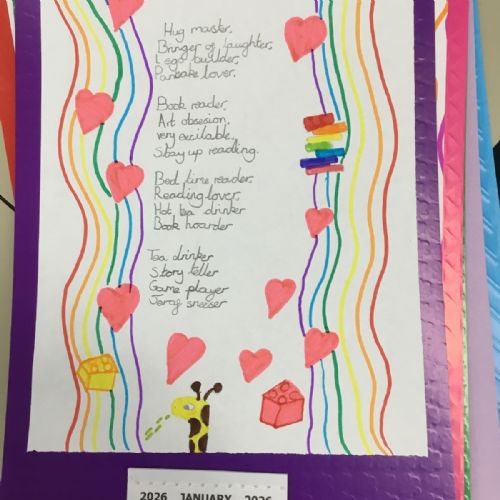 Hug master.
Bringer of laughter.
Lego builder.
Pancake lover.
Book reader.
Art obsesion.
very excitable.
Stay up readling.
Bed time reader.
Reading lover.
Hot tea drinker
Book hoarder
Tea drinker
Story teller
Game player
sneeser
2026 JANUARY 2026